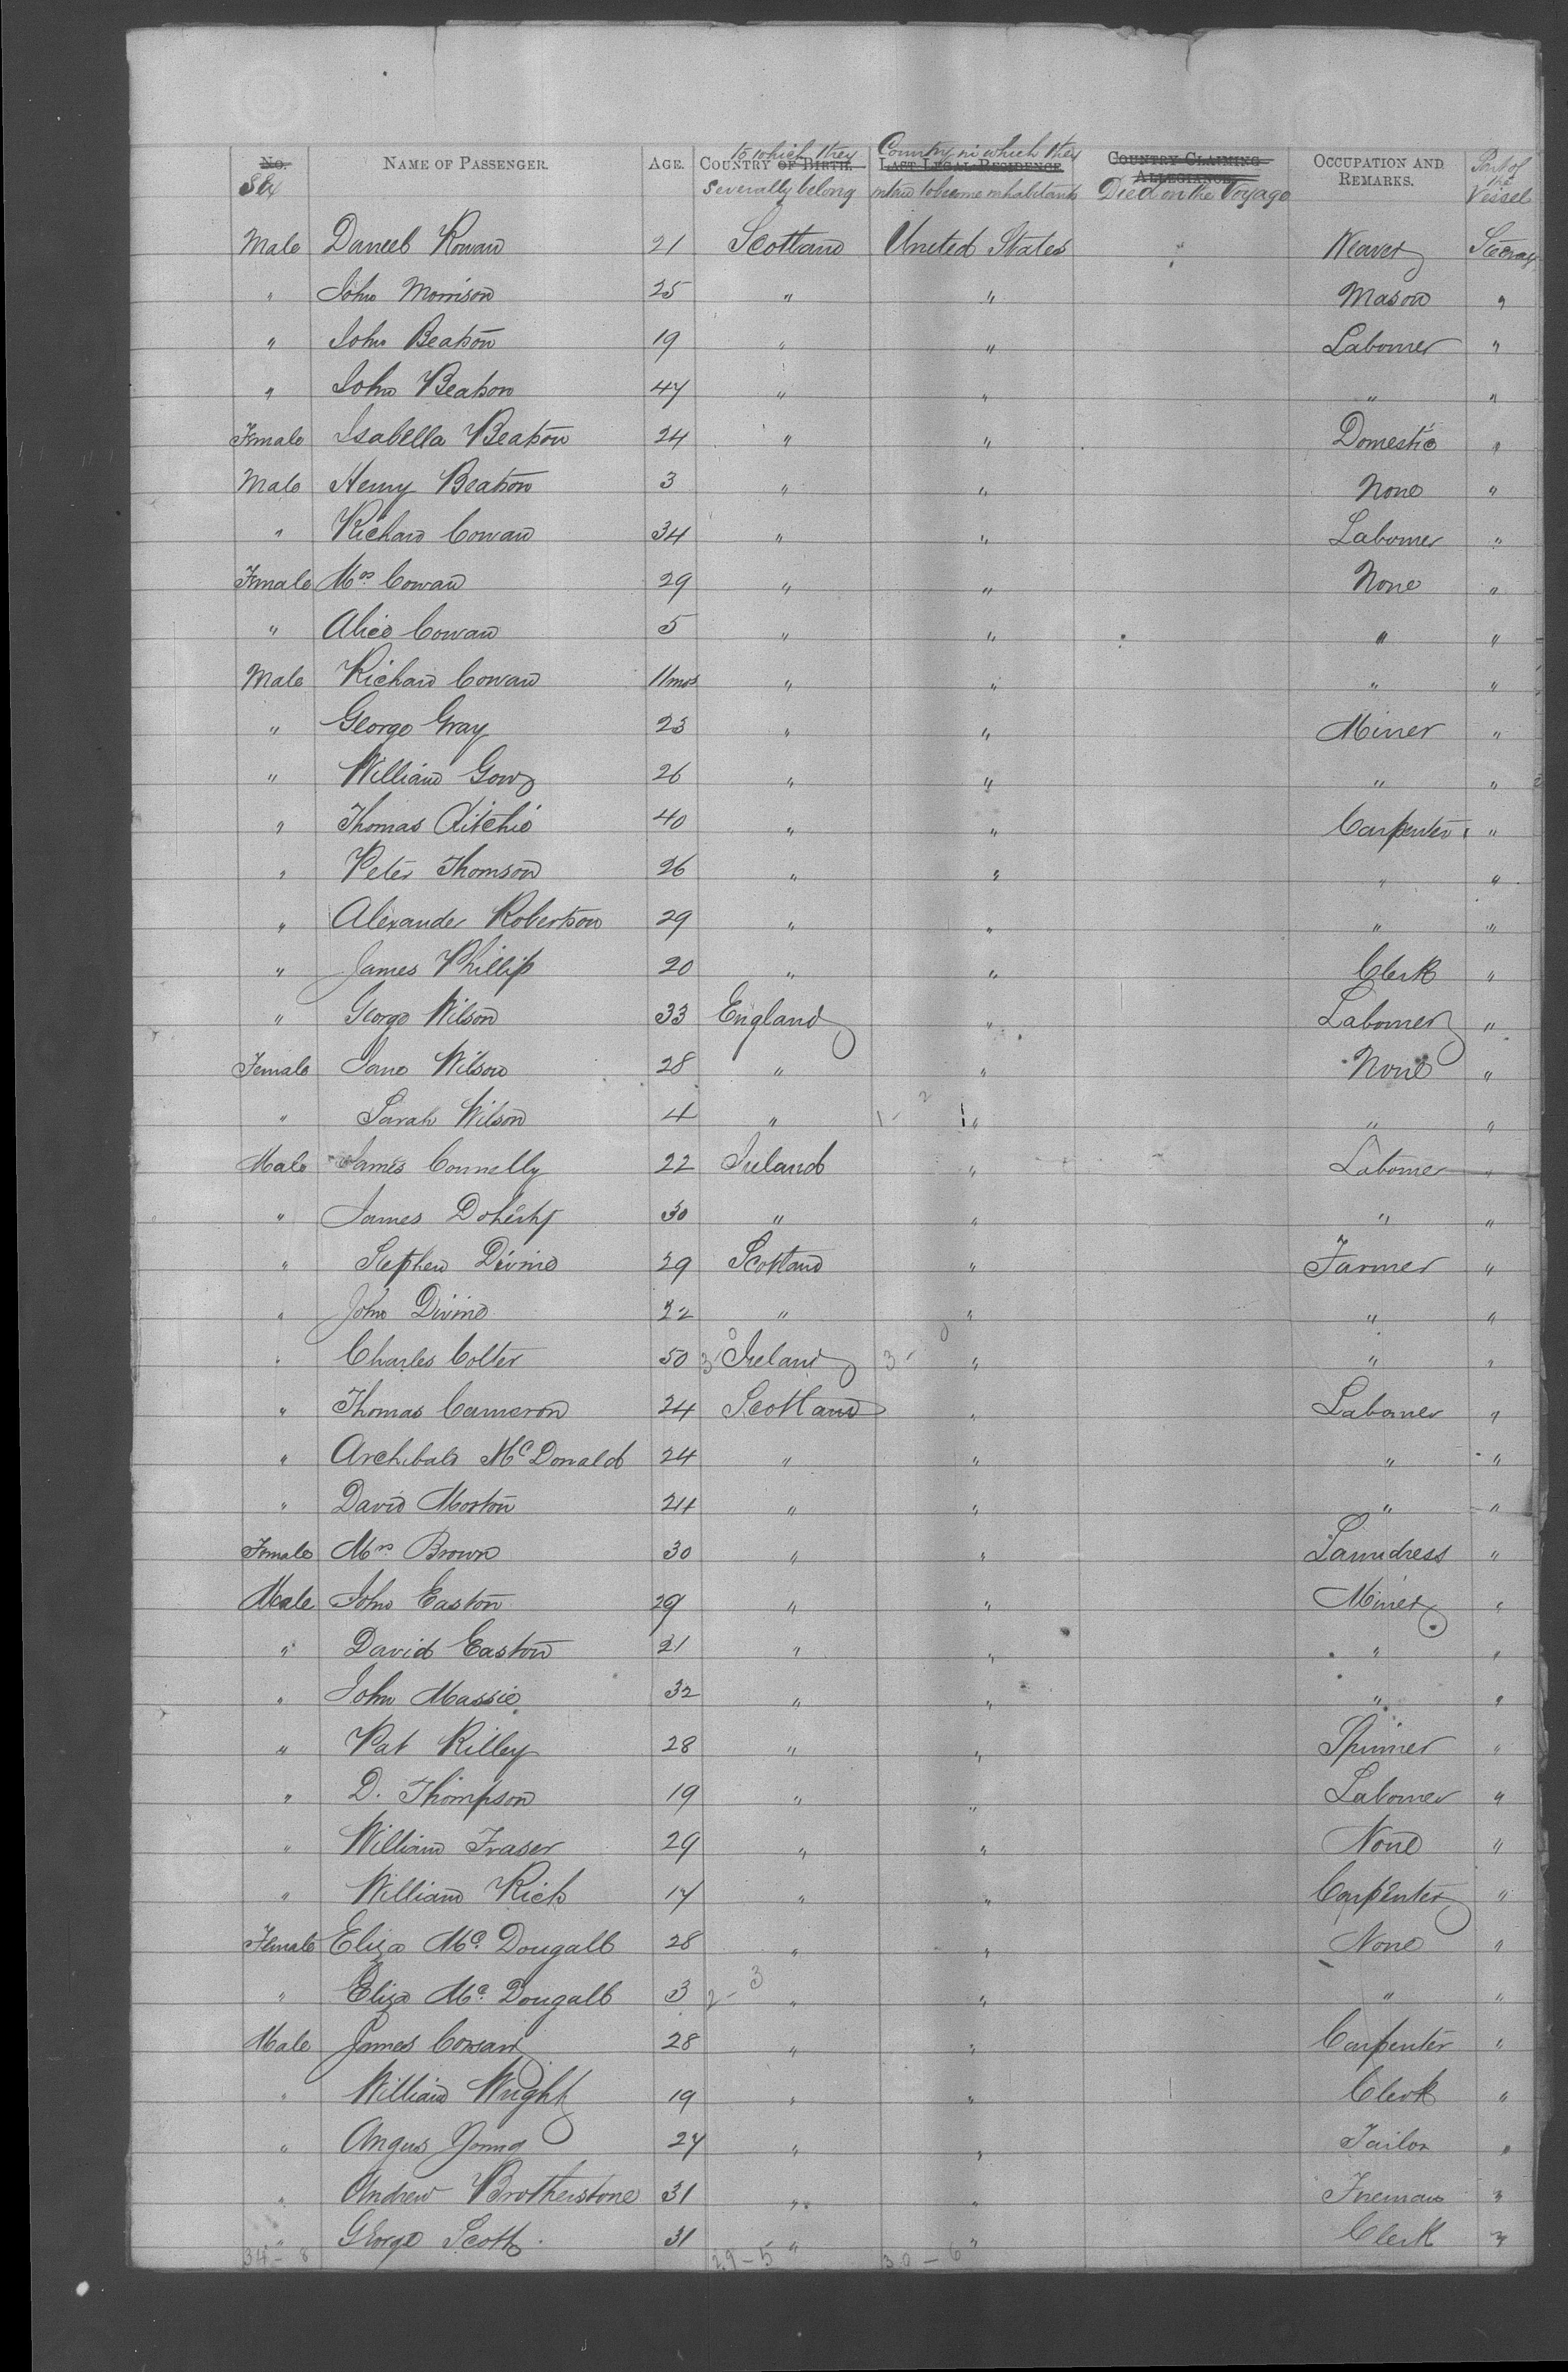 No. NAME OF PASSENGER. AGE. COUNTRY OF BIRTH to which they severally belong LAST LEGAL RESIDENCE Country in which they intend to become inhabitants COUNTRY CLAIMING ALLEGIANCE Died on the Voyage OCCUPATION AND REMARKS. Part of the Vessel
Sex
Male Daniel Rowan 21 Scotland United States Weaver Steerag
" John Morrison 25 " " Mason "
" John Beatson 19 " " Labourer "
" John Beatson 47 " " " "
Female Isabella Beatson 24 " " Domestic "
Male Henry Beatson 3 " " None "
" Richard Cowan 34 " " Labourer "
Female Mrs Cowan 29 " " None "
" Alice Cowan 5 " " " "
Male Richard Cowan 11mos " " " "
" George Gray 23 " " Miner "
" William Gow 26 " " " "
" Thomas Ritchie 40 " " Carpenter "
" Peter Thomson 26 " " " "
" Alexander Robertson 29 " " " "
" James Phillip 20 " " Clerk "
" George Wilson 33 England " Labourer "
Female Jane Wilson 28 " " None "
" Sarah Wilson 4 " 1 - 2 " " "
Male James Connelly 22 Ireland " Labourer "
" James Doherty 30 " " " "
" Stephen Divine 29 Scotland " Farmer "
" John Divine 32 " " " "
" Charles Colter 50 3 - 0 Ireland 3 - 0 " " "
" Thomas Cameron 24 Scotland " Labourer "
" Archibald McDonald 24 " " " "
" David Morton 24 " " " "
Female Mrs Brown 30 " " Laundress "
Male John Easton 29 " " Miner "
" David Easton 21 " " " "
" John Massie 32 " " " "
" Pat Rilley 28 " " Spinner "
" D. Thompson 19 " " Labourer "
" William Fraser 29 " " None "
" William Rich 17 " " Carpenter "
Female Eliza McDougall 28 " " None "
" Eliza McDougall 3 2 - 3 " " " "
Male James Cowan 28 " " Carpenter "
" William Wright 19 " " Clerk "
" Angus Young 27 " " Tailor "
" Andrew Brotherstone 31 " " Fireman "
" George Scott 31 " " Clerk "
34 - 8 29 - 5 30 - 6